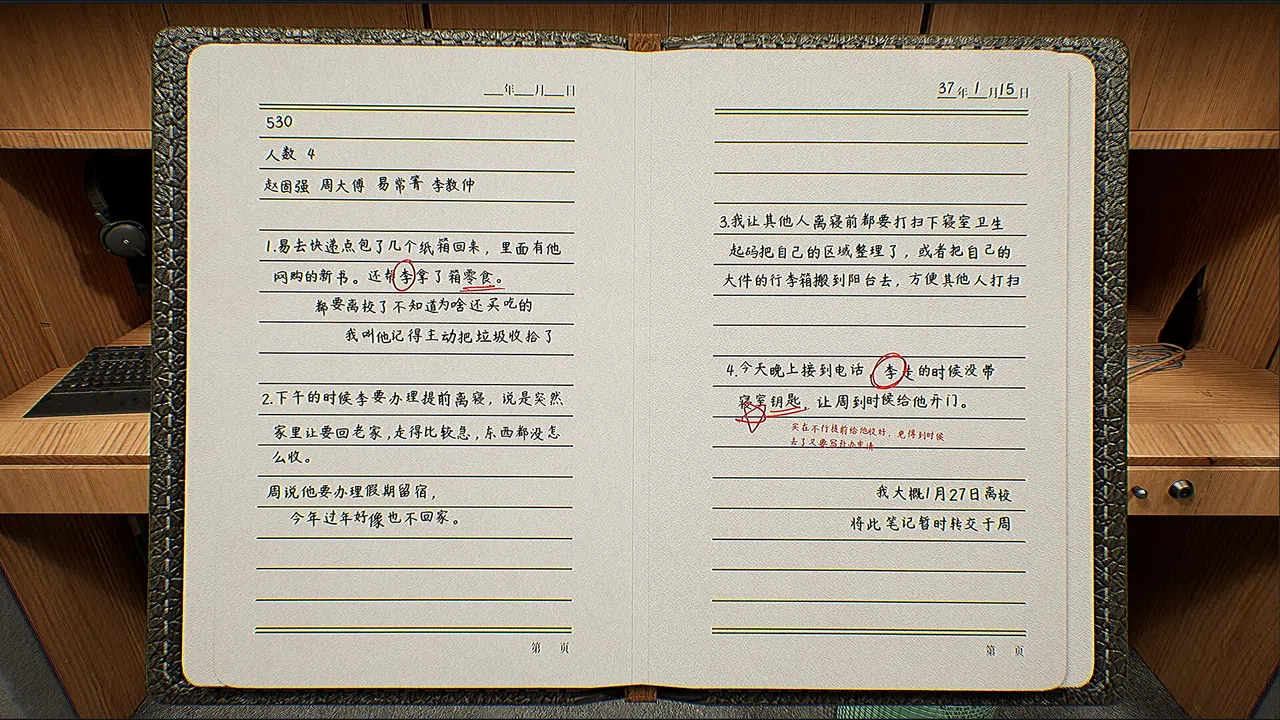 ___年___月___日
530
人数 4
赵国强 周大傅 易常箐 李教仲
1.易去快递点包了几个纸箱回来，里面有他
网购的新书。还帮李拿了箱零食。
都要离校了不知道为啥还买吃的
我叫他记得主动把垃圾收拾了
2.下午的时候李要办理提前离寝，说是突然
家里让要回老家，走得比较急，东西都没怎
么收。
周说他要办理假期留宿，
今年过年好像也不回家。
第 页
37年1月15日
3.我让其他人离寝前都要打扫下寝室卫生
起码把自己的区域整理了，或者把自己的
大件的行李箱搬到阳台去，方便其他人打扫
4.今天晚上接到电话，李走的时候没带
寝室钥匙，让周到时候给他开门。
实在不行提前给他收好，免得到时候
去了又要写补办申请
我大概1月27日离校
将此笔记暂时转交于周
第 页